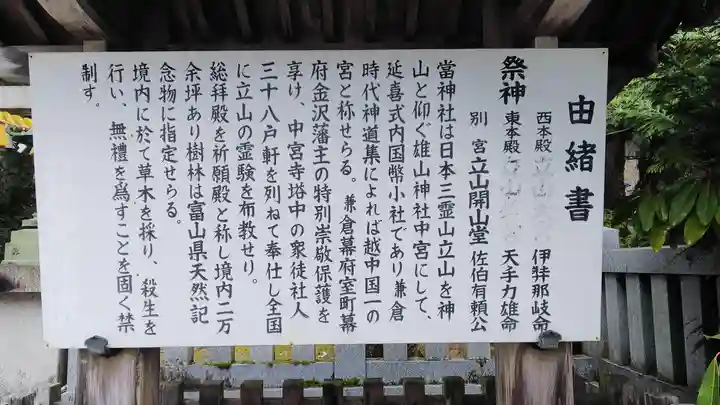 由緒書
祭神
西本殿 立山 伊弉那岐命
東本殿 天手力雄命
別宮 立山開山堂 佐伯有頼公
當神社は日本三霊山立山を神
山と仰ぐ雄山神社中宮にして、
延喜式内国幣小社であり兼倉
時代神道集によれば越中国一の
宮と称せらる。兼倉幕府室町幕
府金沢藩主の特別崇敬保護を
享け、中宮寺塔中の衆徒社人
三十八戸軒を列ねて奉仕し全国
に立山の霊験を布教せり。
総拜殿を祈願殿と称し境内二万
余坪あり樹林は富山県天然記
念物に指定せらる。
境内に於て草木を採り、殺生を
行い、無禮を爲すことを固く禁
制す。